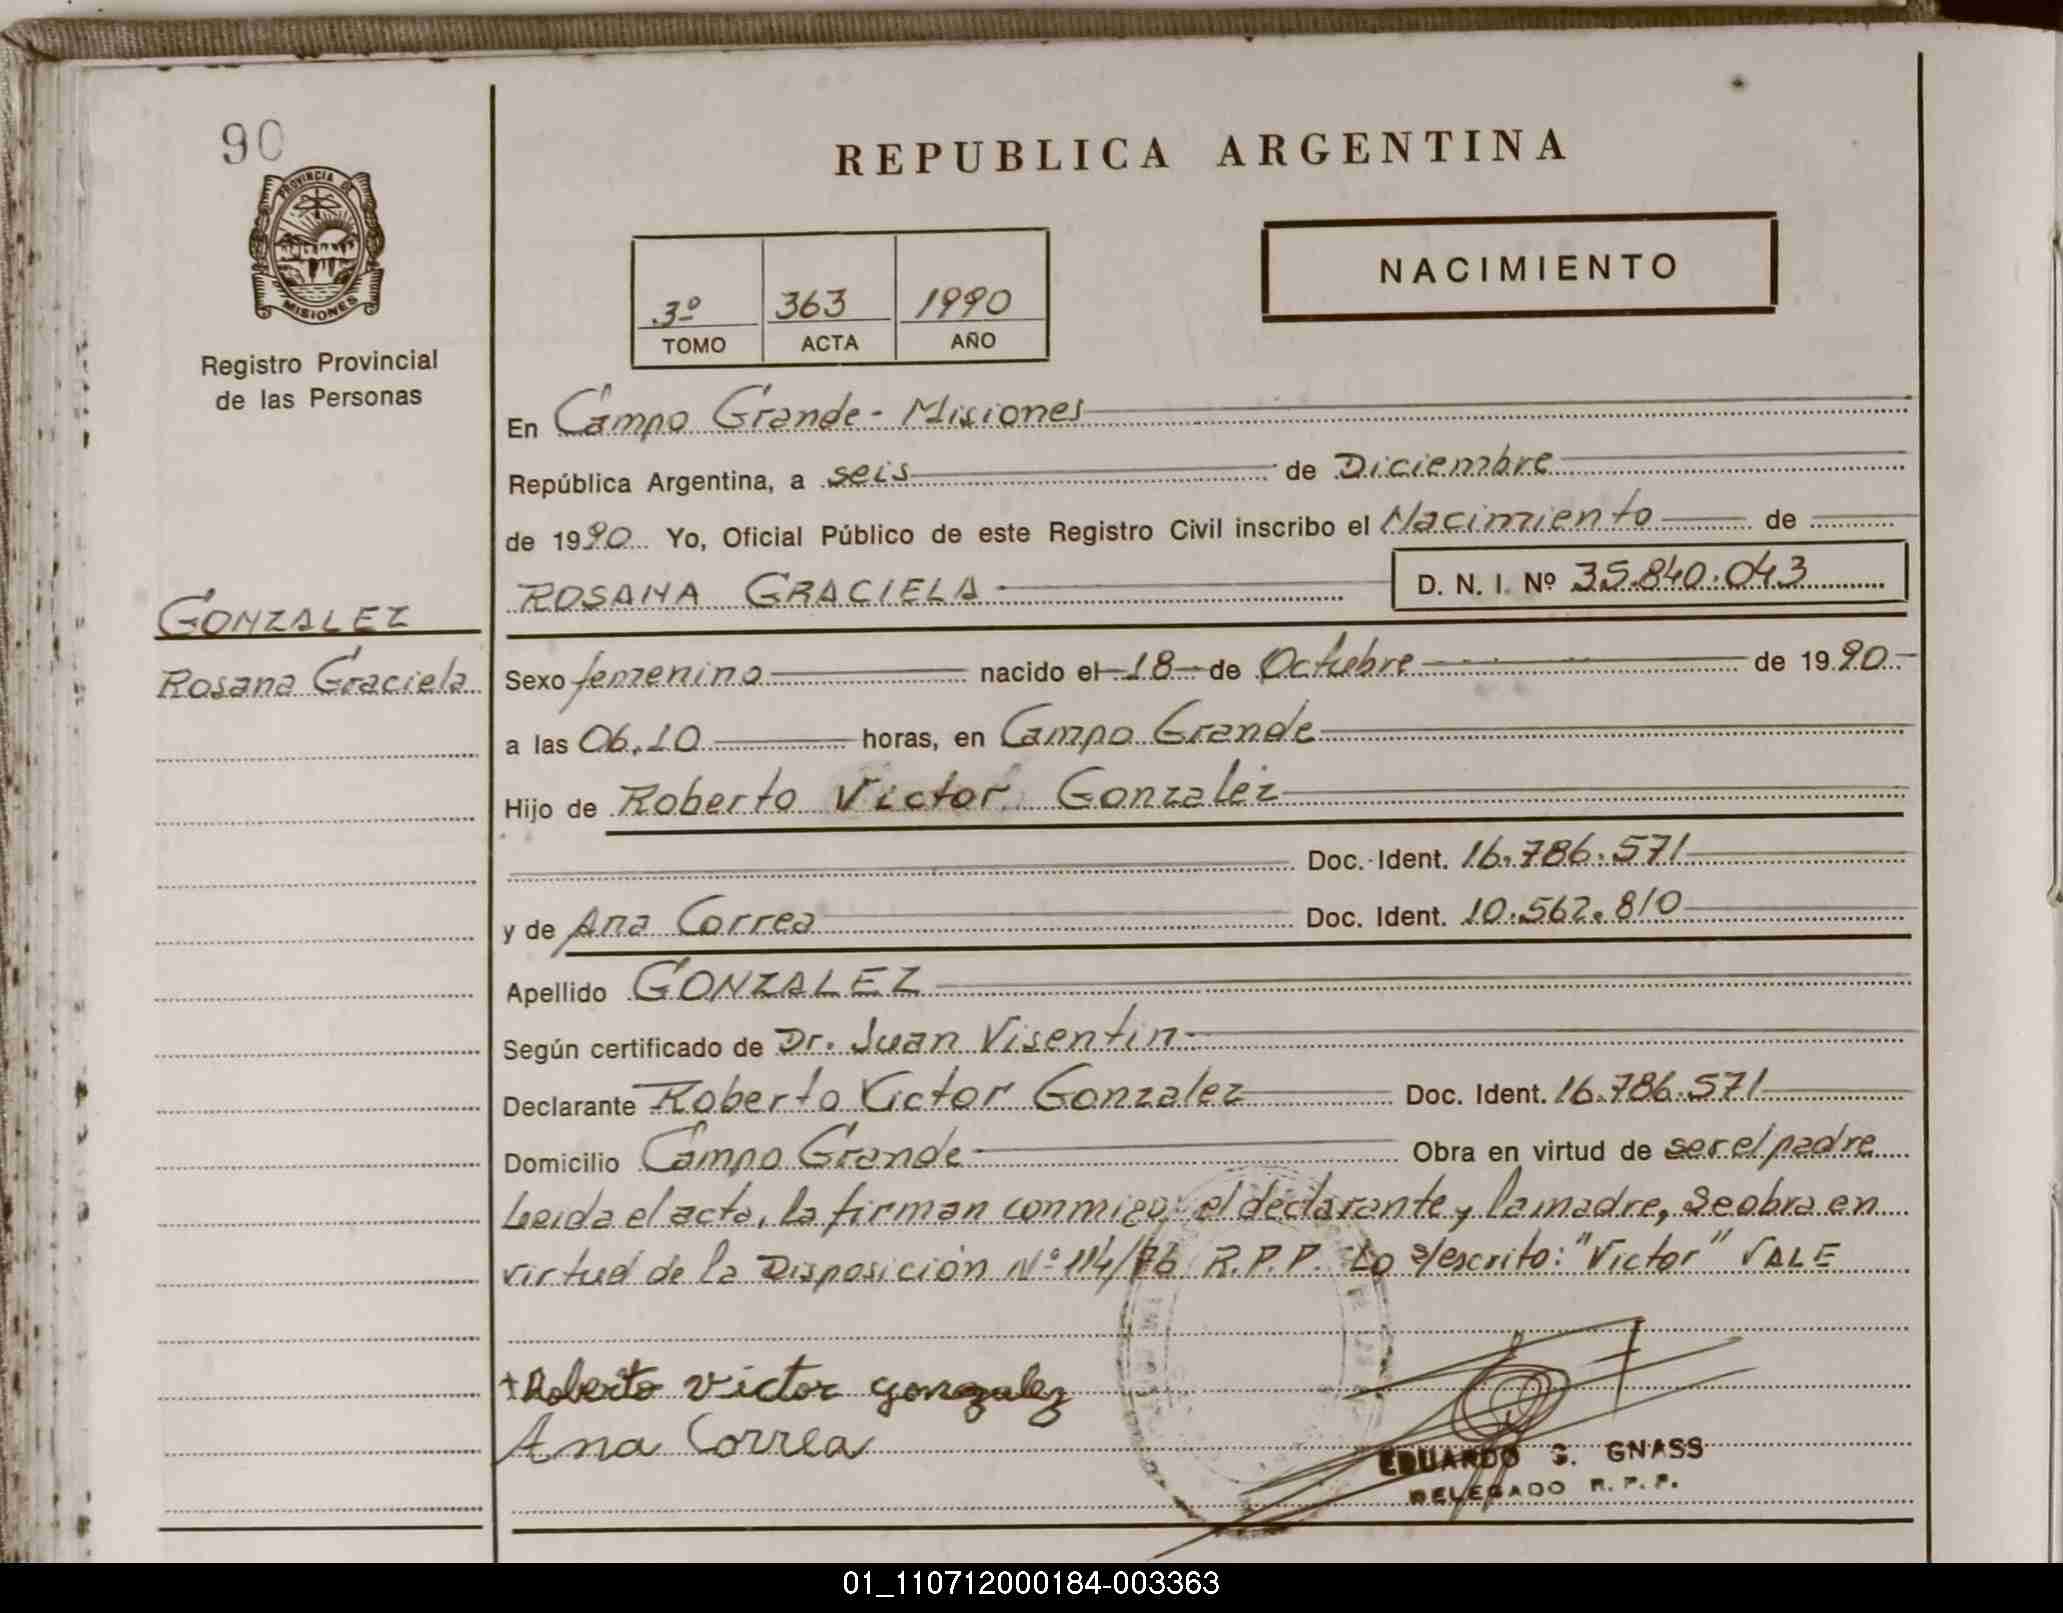 90
PROVINCIA DE
MISIONES
Registro Provincial
de las Personas
REPUBLICA ARGENTINA
3º 363 1990
TOMO ACTA AÑO
NACIMIENTO
En Campo Grande - Misiones
República Argentina, a seis de Diciembre
de 1990 Yo, Oficial Público de este Registro Civil inscribo el Nacimiento de
ROSANA GRACIELA D. N. I. Nº 35.840.043
GONZALEZ
Rosana Graciela
Sexo femenino nacido el 18 de Octubre de 1990
a las 06,10 horas, en Campo Grande
Hijo de Roberto Victor Gonzalez
Doc. Ident. 16.786.571
y de Ana Correa Doc. Ident. 10.562.810
Apellido GONZALEZ
Según certificado de Dr. Juan Visentin
Declarante Roberto Victor Gonzalez Doc. Ident. 16.786.571
Domicilio Campo Grande Obra en virtud de ser el padre
Leida el acta, la firman conmigo: el declarante y la madre, Se obra en
virtud de la Disposición Nº 114/76 R.P.P. Lo s/escrito: "Victor" VALE
+Roberto victor gonzalez
Ana Correa
EDUARDO G. GNASS
DELEGADO R. P. P.
01_110712000184-003363